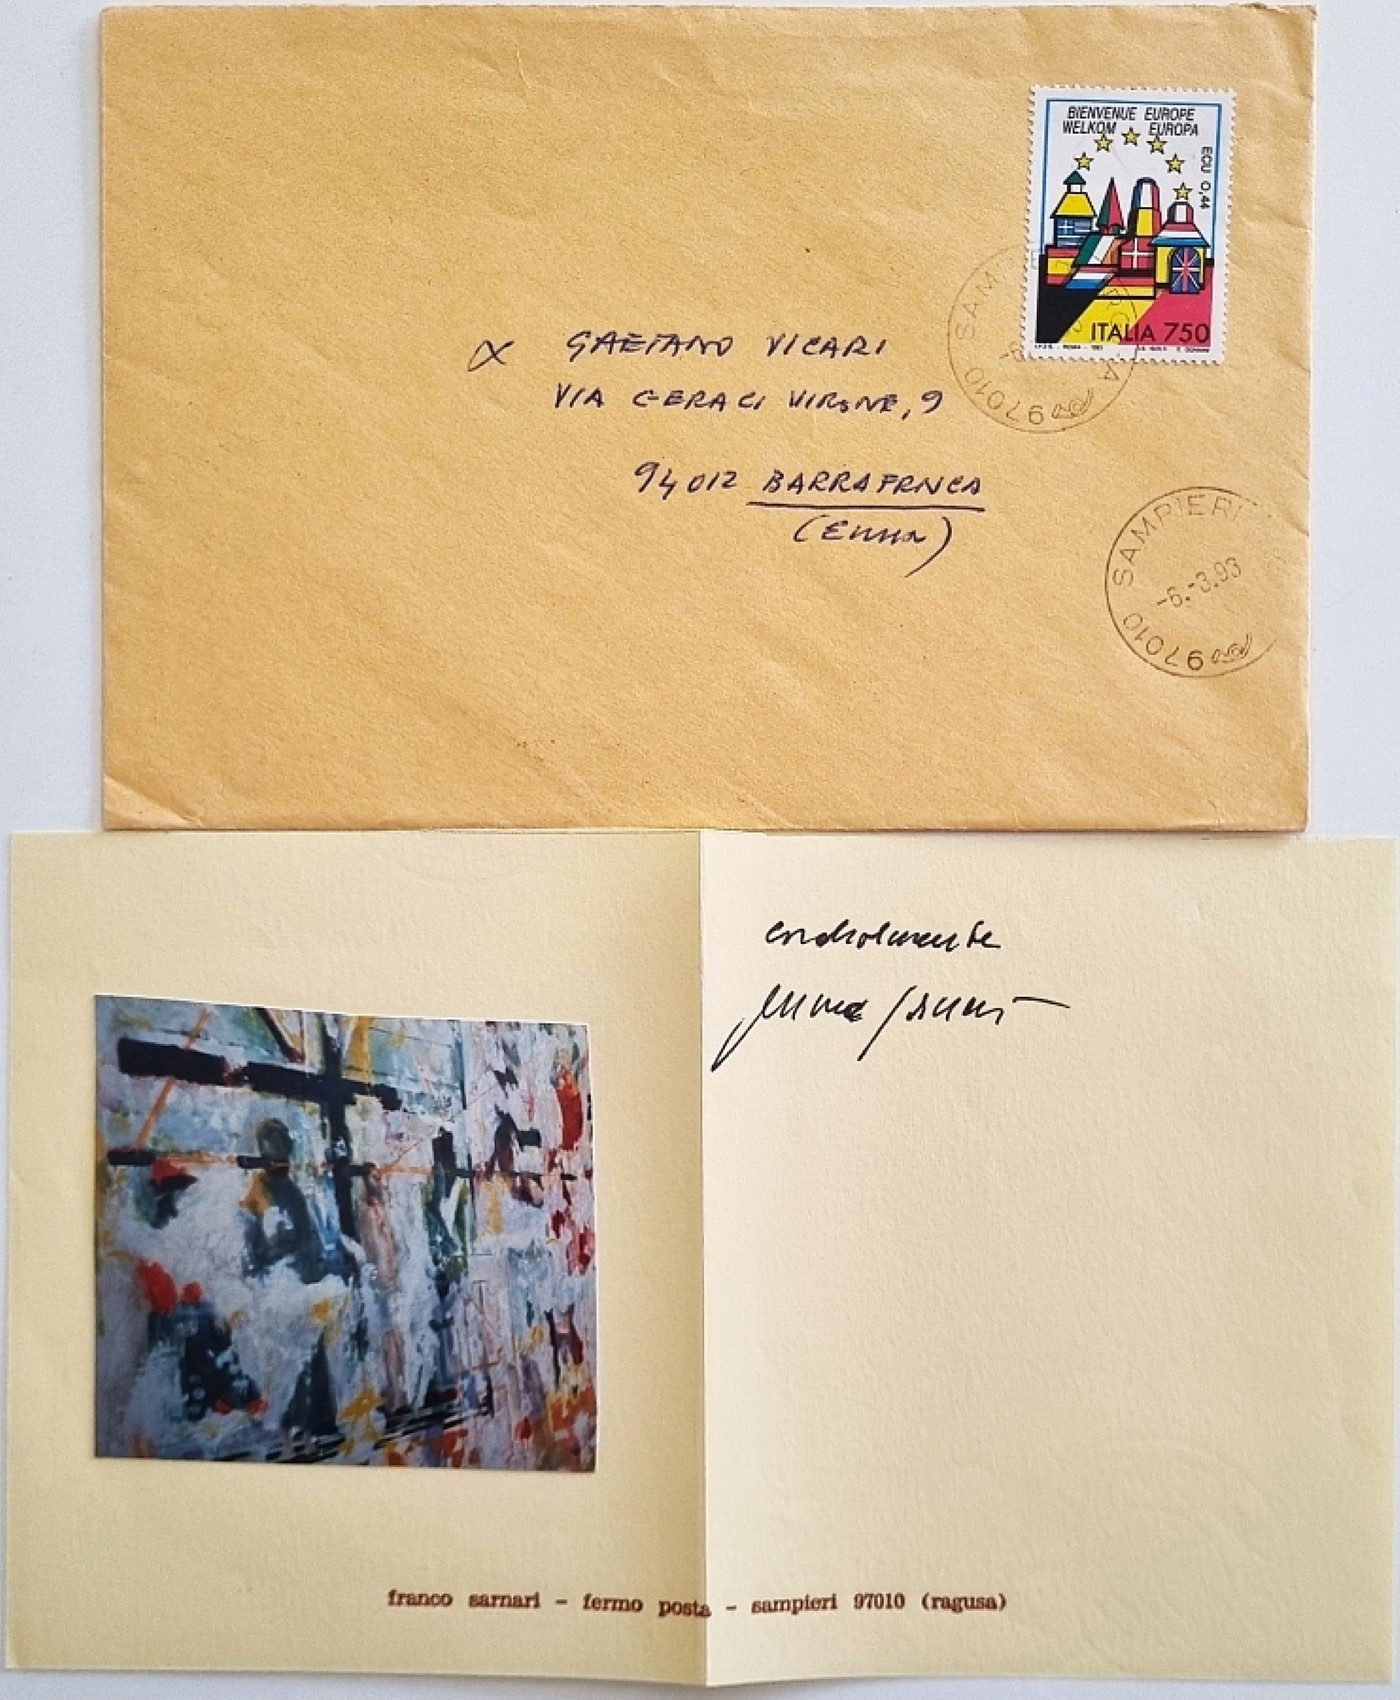 BIENVENUE EUROPE
WELKOM EUROPA
ECU 0,44
ITALIA 750
GAETANO VICARI
VIA GERACI VIRONE, 9
94012 BARRAFRNCA
(Enna)
97010 SAMPIERI
-6.-3.93
cordialmente
franco sarnari - fermo posta - sampieri 97010 (ragusa)